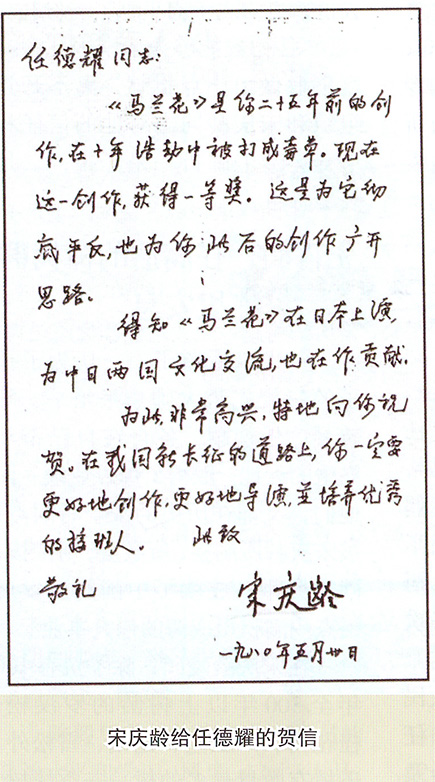 任德耀同志：
《马兰花》是你二十五年前的创
作，在十年浩劫中被打成毒草。现在
这一创作，获得一等奖。这是为它彻
底平反，也为你此后的创作广开
思路。
得知《马兰花》在日本上演，
为中日两国文化交流，也在作贡献。
为此，非常高兴，特地向你祝
贺。在我国新长征的道路上，你一定要
更好地创作，更好地导演，并培养优秀
的接班人。 此致
敬礼
宋庆龄
一九八〇年五月卅日
宋庆龄给任德耀的贺信